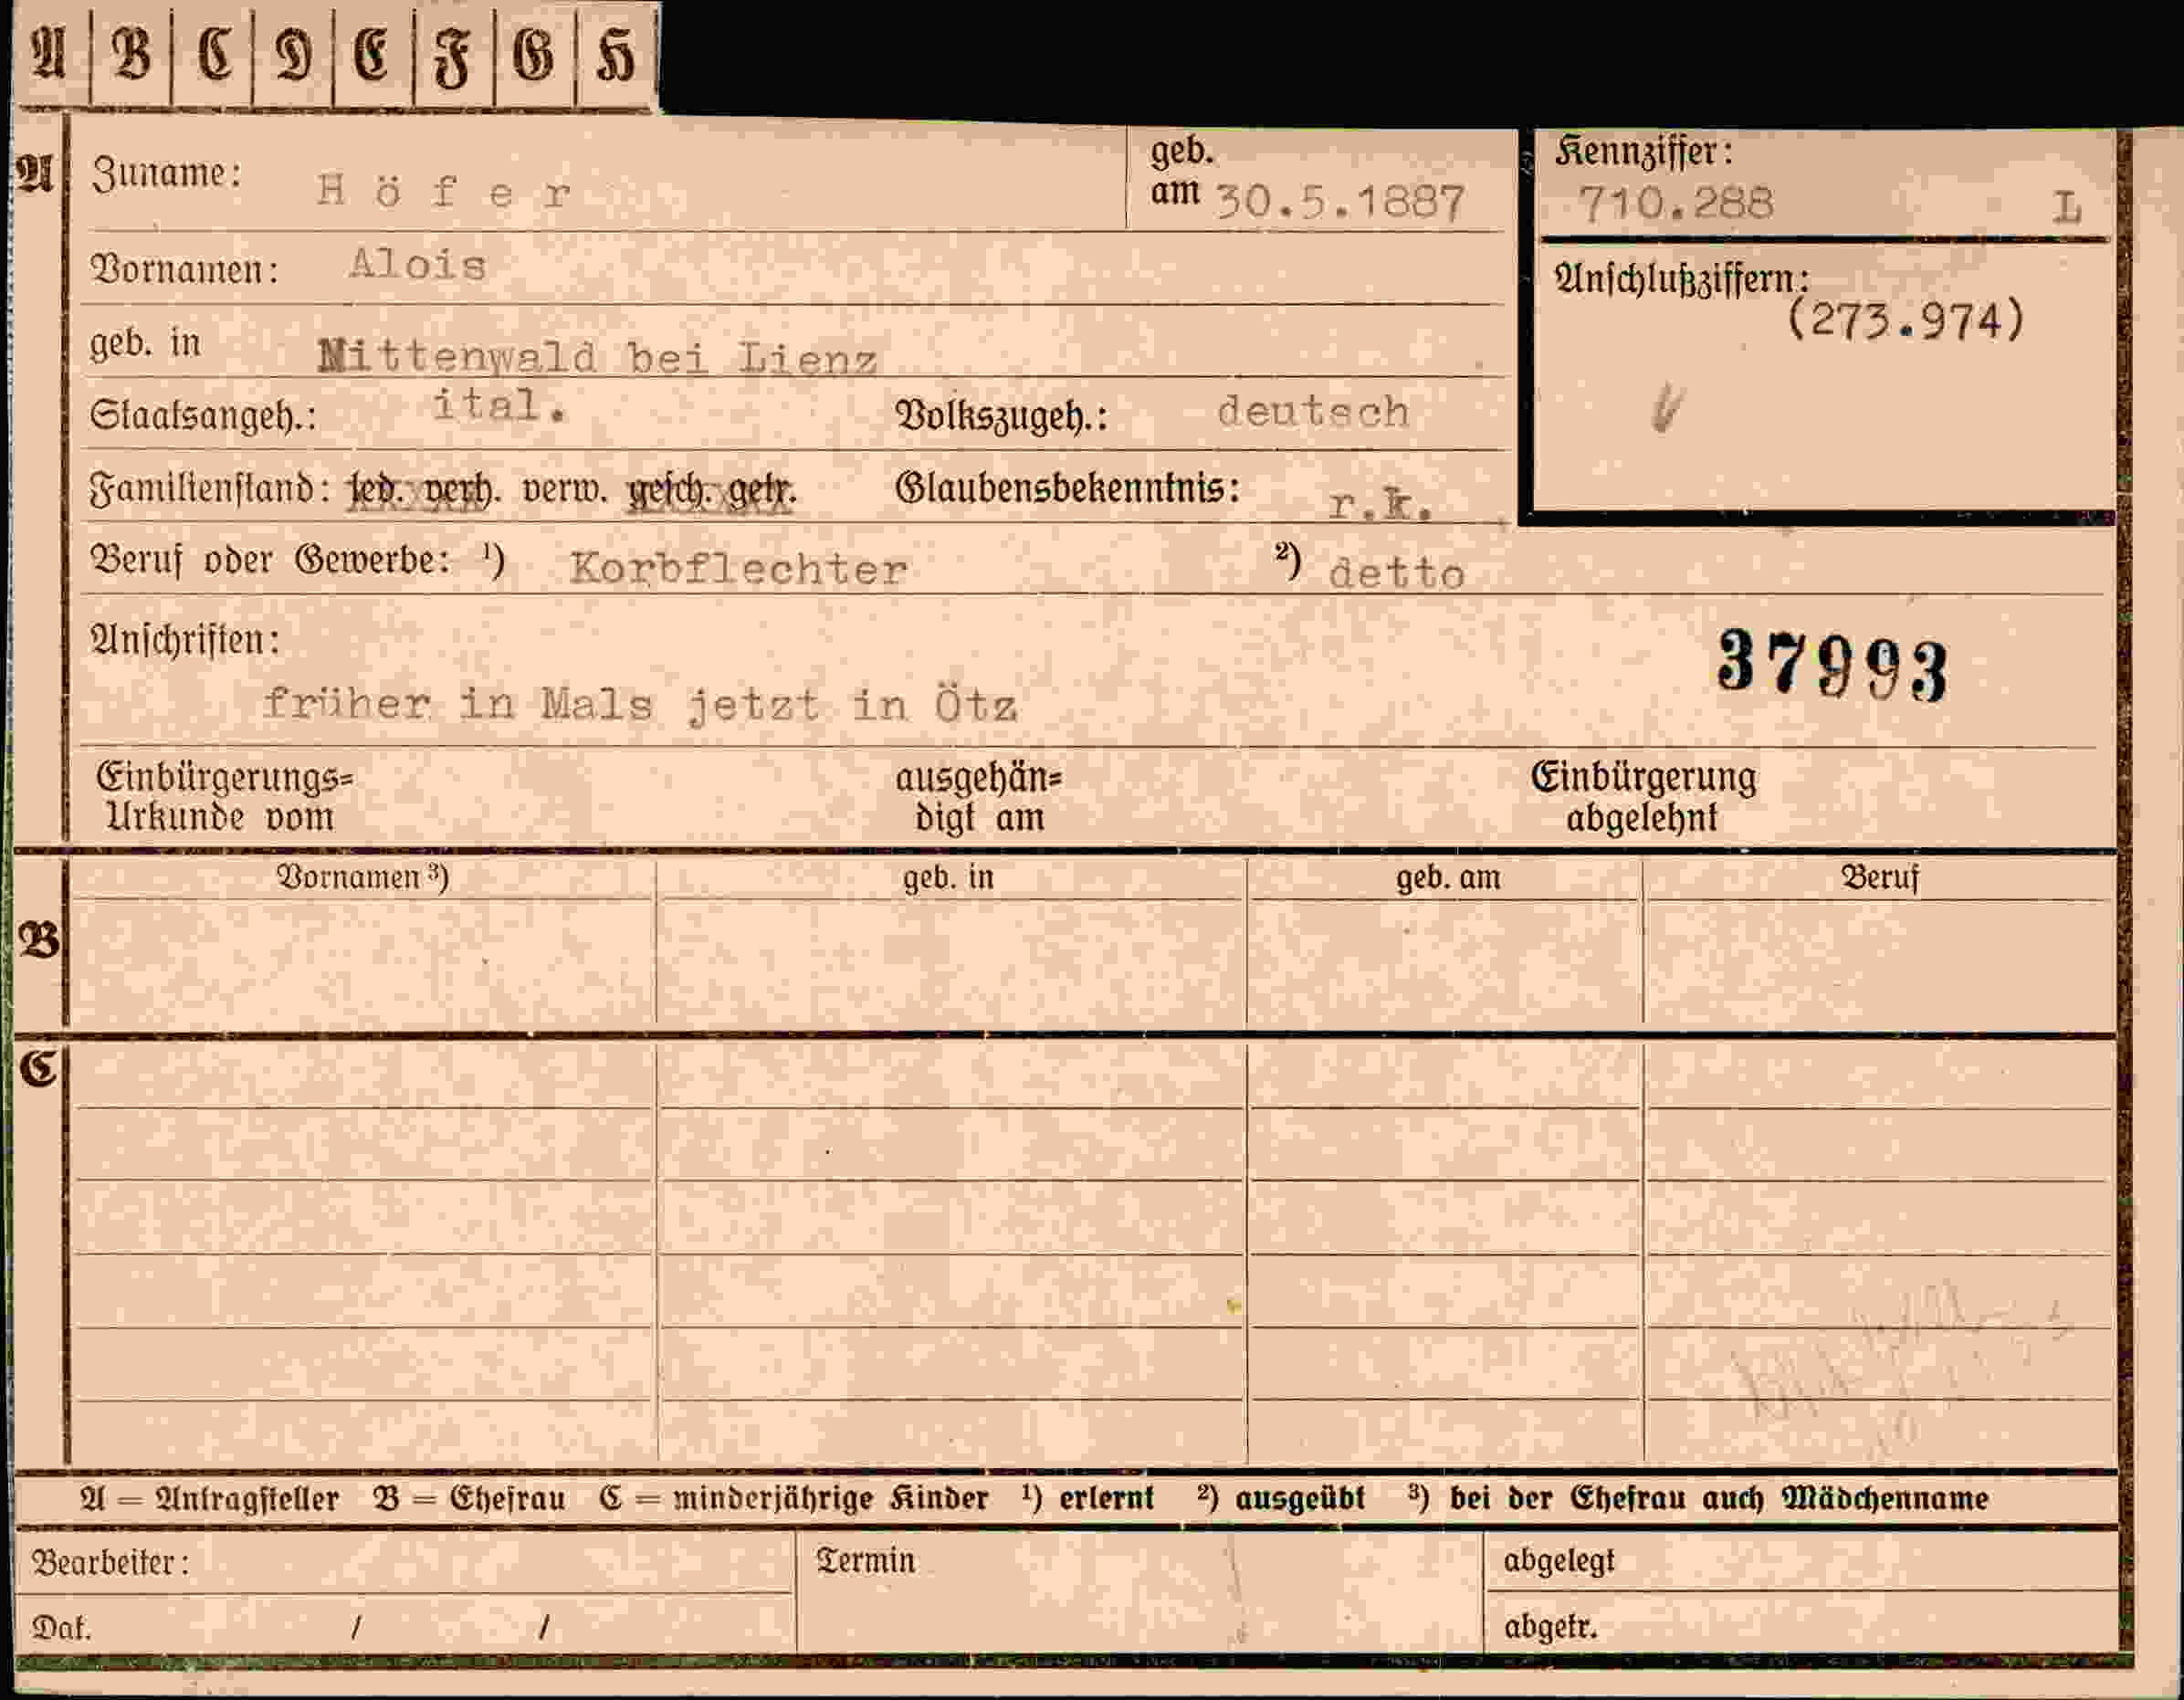 A B C D E F G H
A Zuname: Höfer geb. am 30.5.1887 Kennziffer: 710.288 L
Vornamen: Alois Anschlußziffern: (273.974)
geb. in Mittenwald bei Lienz
Staatsangeh.: ital. Volkszugeh.: deutsch
Familienstand: led. verh. verw. gesch. getr. Glaubensbekenntnis: r.k.
Beruf oder Gewerbe: ¹) Korbflechter ²) detto
Anschriften: 37993
früher in Mals jetzt in Ötz
Einbürgerungs= ausgehän= Einbürgerung
Urkunde vom digt am abgelehnt
Vornamen ³) geb. in geb. am Beruf
B
C
A = Antragsteller B = Ehefrau C = minderjährige Kinder ¹) erlernt ²) ausgeübt ³) bei der Ehefrau auch Mädchenname
Bearbeiter: Termin abgelegt
Dat. / / abgetr.